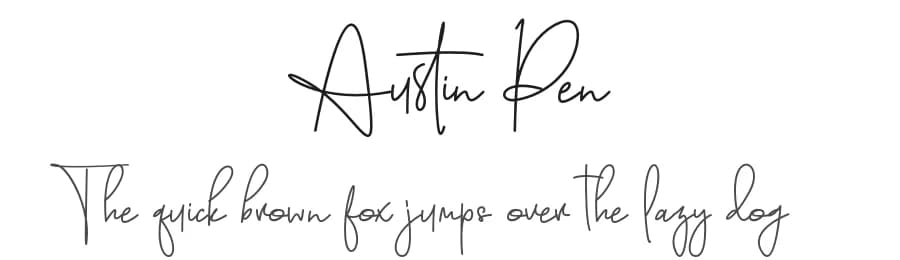 Austin Pen
The quick brown fox jumps over the lazy dog